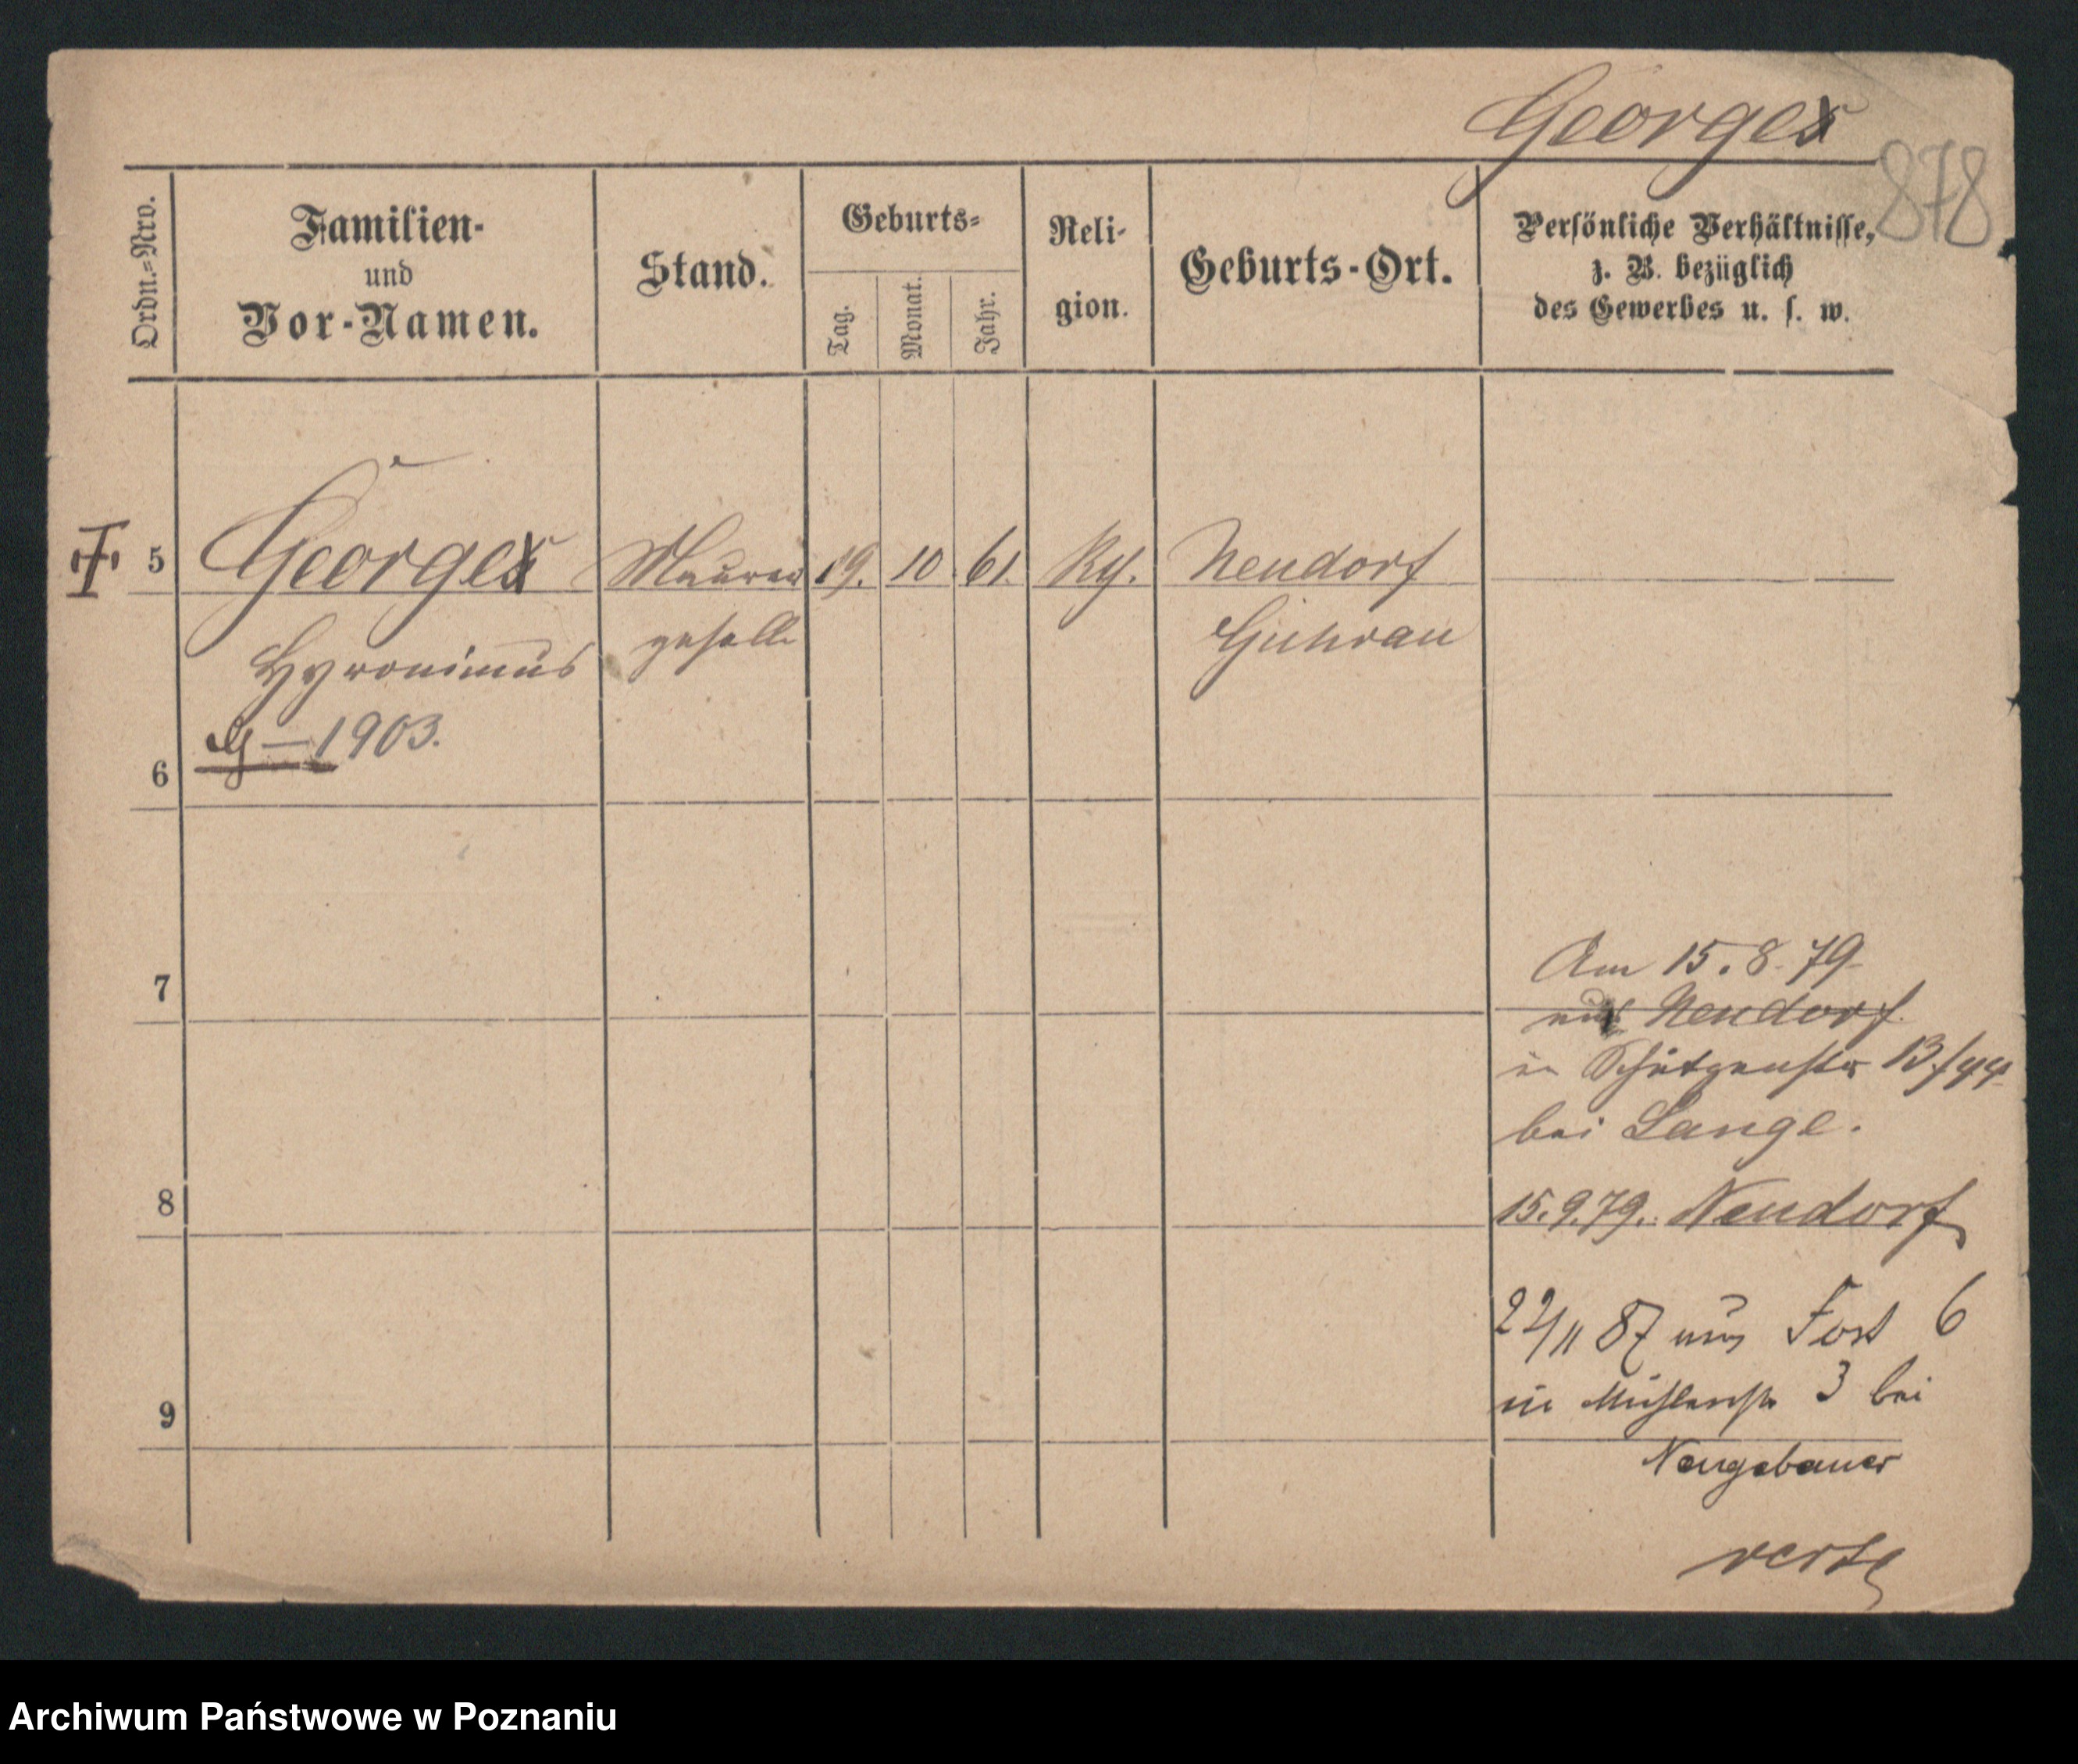 George
878
Ordn.=Nro.
Familien-
und
Vor-Namen.
Stand.
Geburts-
Tag.
Monat.
Jahr.
Reli-
gion.
Geburts-Ort.
Persönliche Verhältnisse,
z. B. bezüglich
des Gewerbes u. s. w.
5 George Maurer 19. 10 61. Neudorf
Hyronimus geselle Guhrau
1903.
6
Am 15.8.79
7
aus Neudorf.
in Schützenstr 13/
bei Lange.
8 15.9.79. Neudorf
22/11 87 aus Fort 6
in Mühlenstr 3 bei
9
Neugebauer
verte
Archiwum Państwowe w Poznaniu